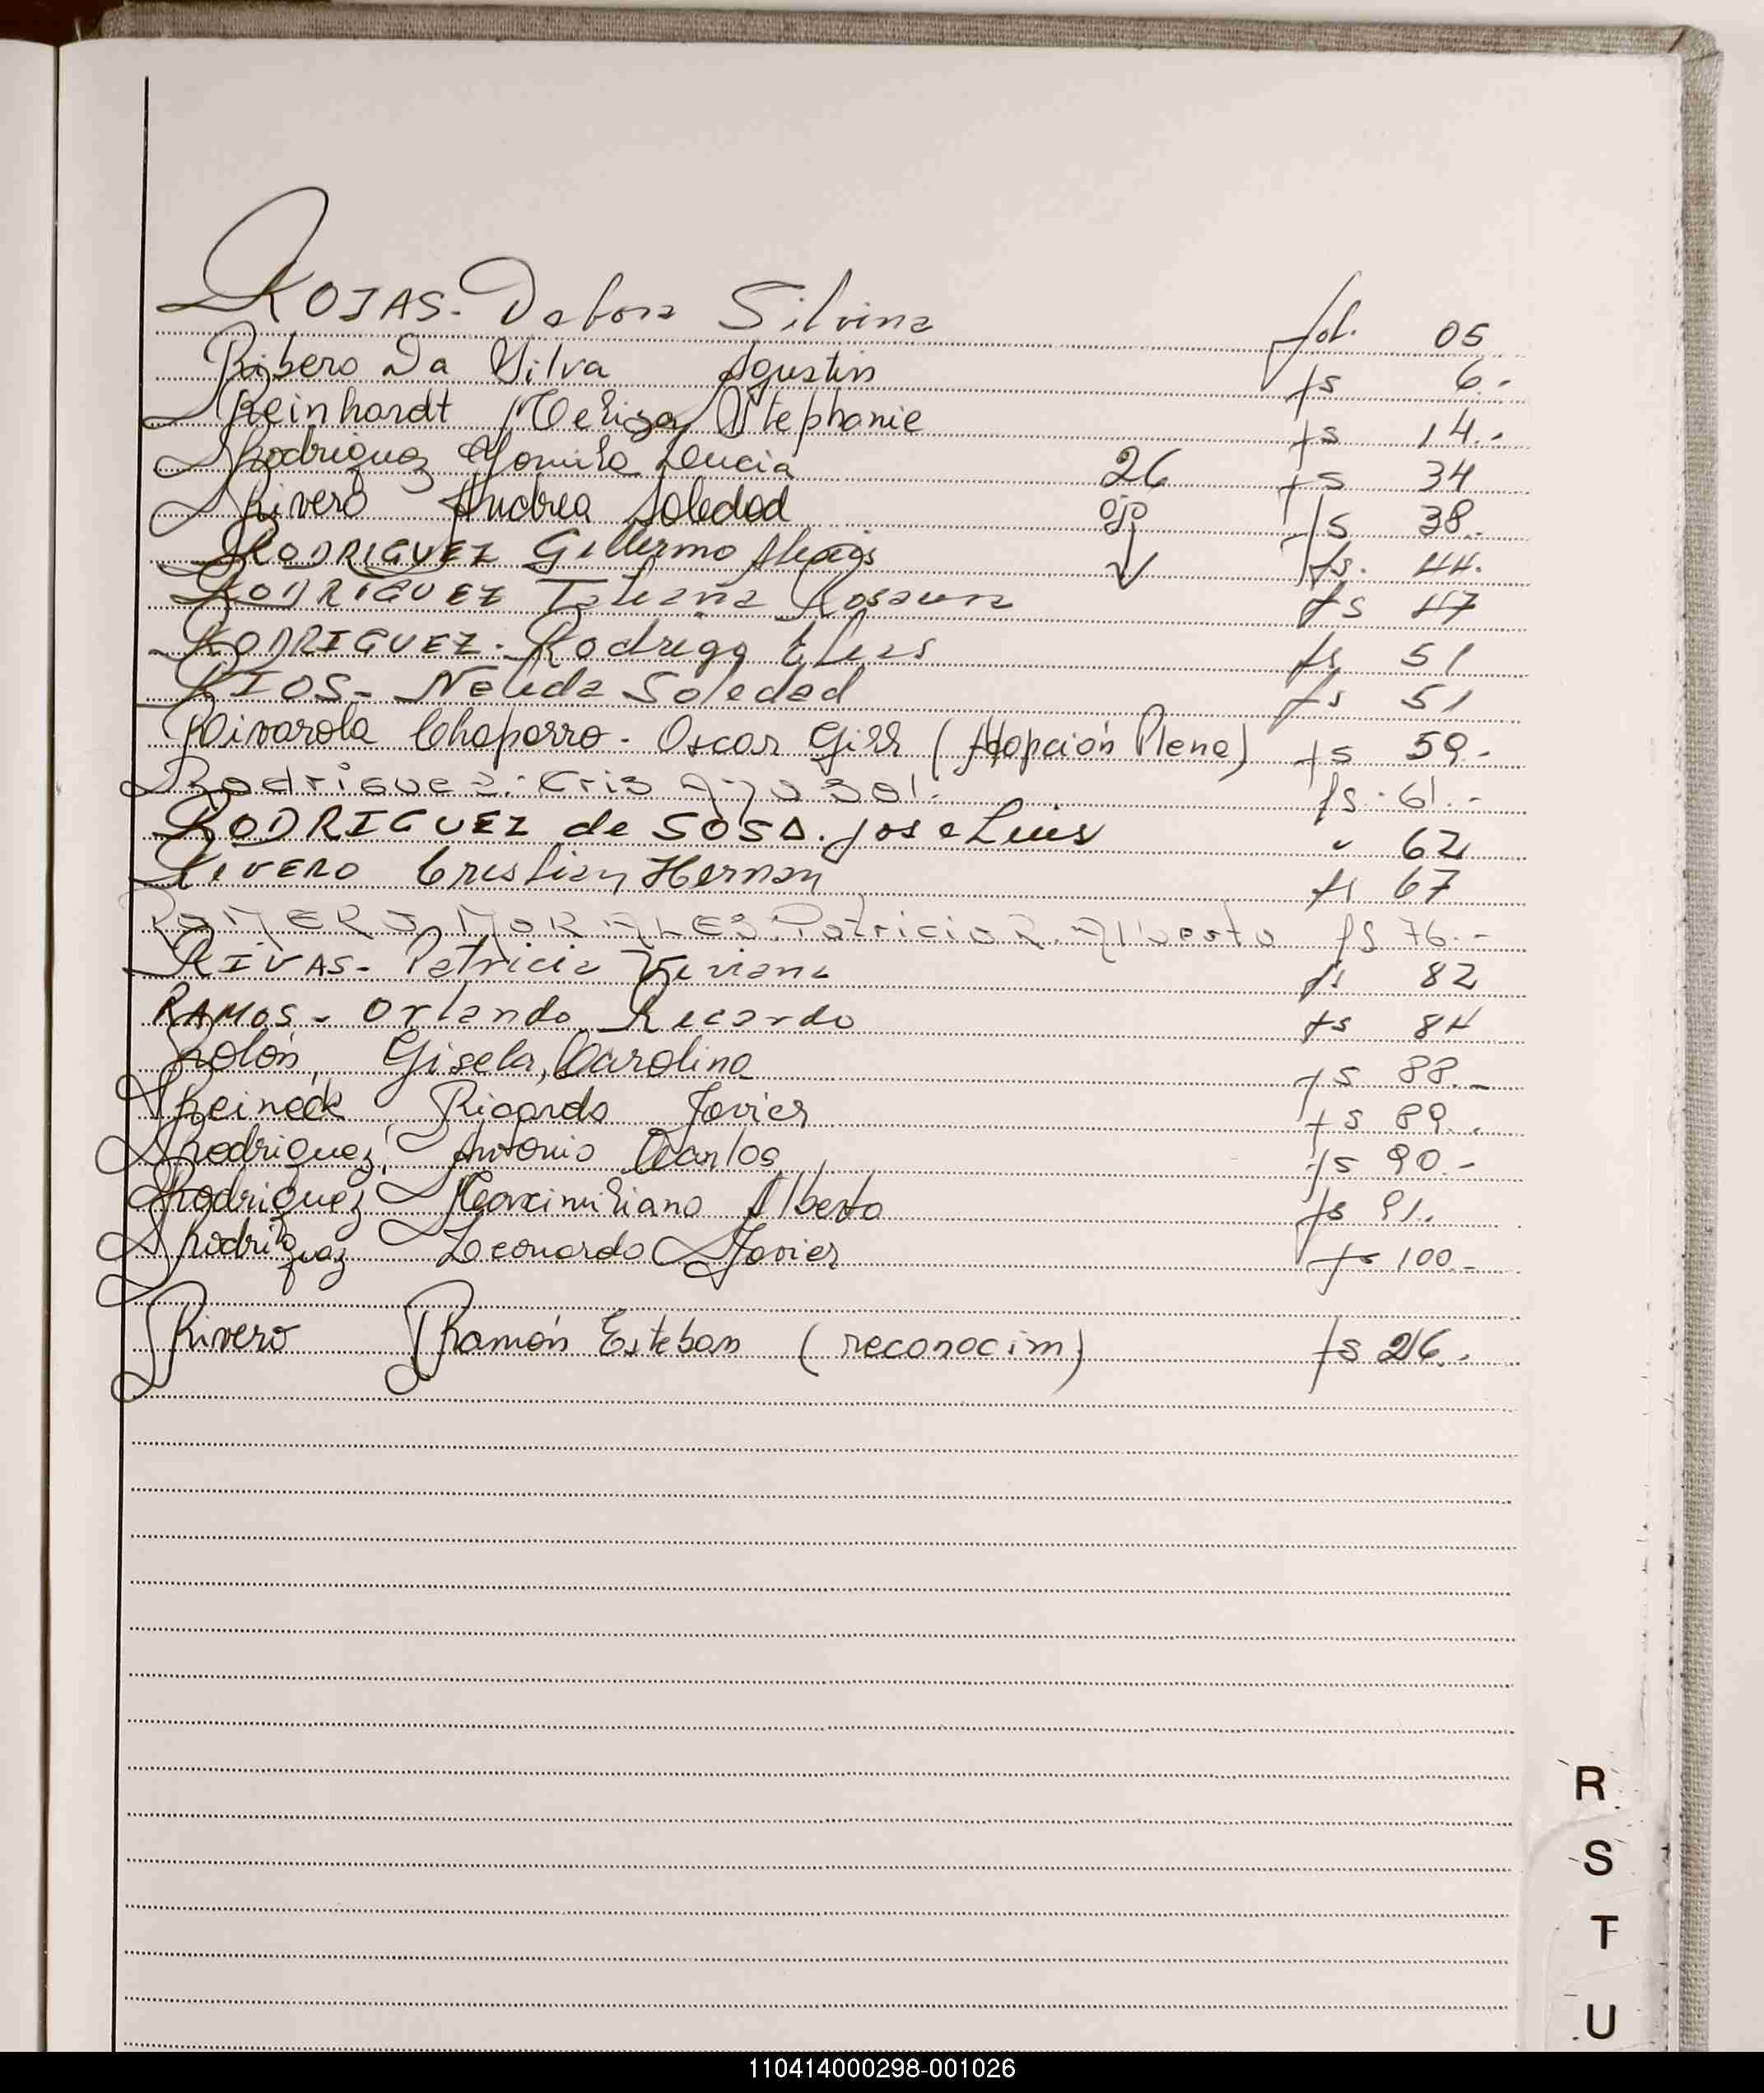 ROJAS - Debora Silvina fol. 05
Ribero Da Silva Agustin fs 6.-
Reinhardt Meliza Stephanie fs 14.-
Rodriguez Yamila Lucia 26 fs 34
Rivero Andrea Soledad ojo fs 38.-
RODRIGUEZ Gillermo Alexis fs. 44.
RODRIGUEZ Tatiana Rosaura fs 47
RODRIGUEZ - Rodrigo Elias fs 51
RIOS - Nelida Soledad fs 51
Rivarola Chaparro - Oscar Gill (Adopción Plena) fs 59.-
Rodriguez: Cris Sol. fs. 61.-
RODRIGUEZ de SOSA. Jose Luis " 62
RIVERO Cristian Hernan fs 67
ROMERO MORALES. Patricio R. Alberto fs 76.-
RIVAS - Patricia Viviana fs 82
RAMOS - Orlando Ricardo fs 84
Rolón, Gisela, Carolina fs 88.-
Reineck Ricardo Javier fs 89.
Rodriguez, Antonio Carlos fs 90.-
Rodriguez Maximiliano Alberto fs 91.
Rodriguez Leonardo Javier fs 100.-
Rivero Ramón Esteban (reconocim) fs
R
S
T
U
110414000298-001026